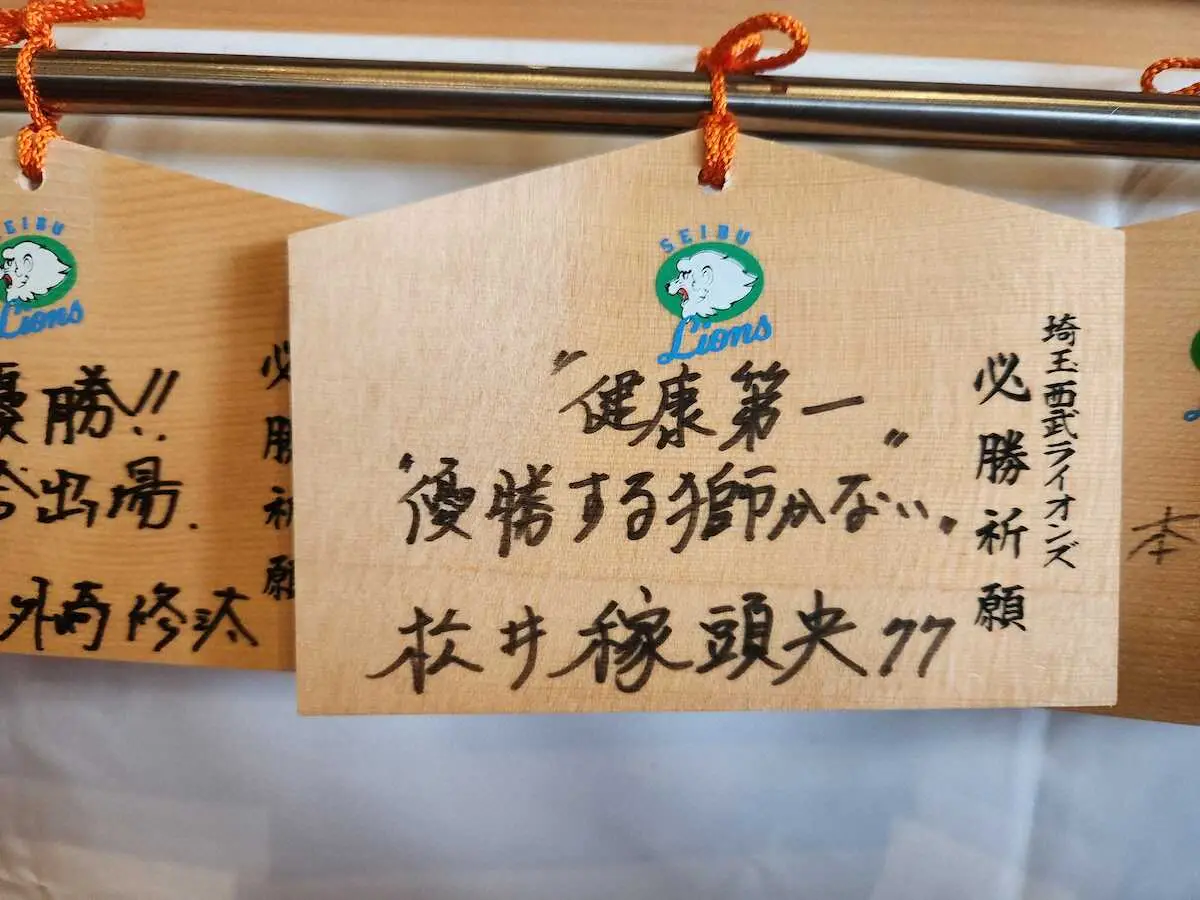 SEIBU
Lions
優勝!!
出場.
外崎修汰
必勝祈願
SEIBU
Lions
埼玉西武ライオンズ
必勝祈願
〝健康第一〟
“優勝する獅かない〟
松井稼頭央77
本